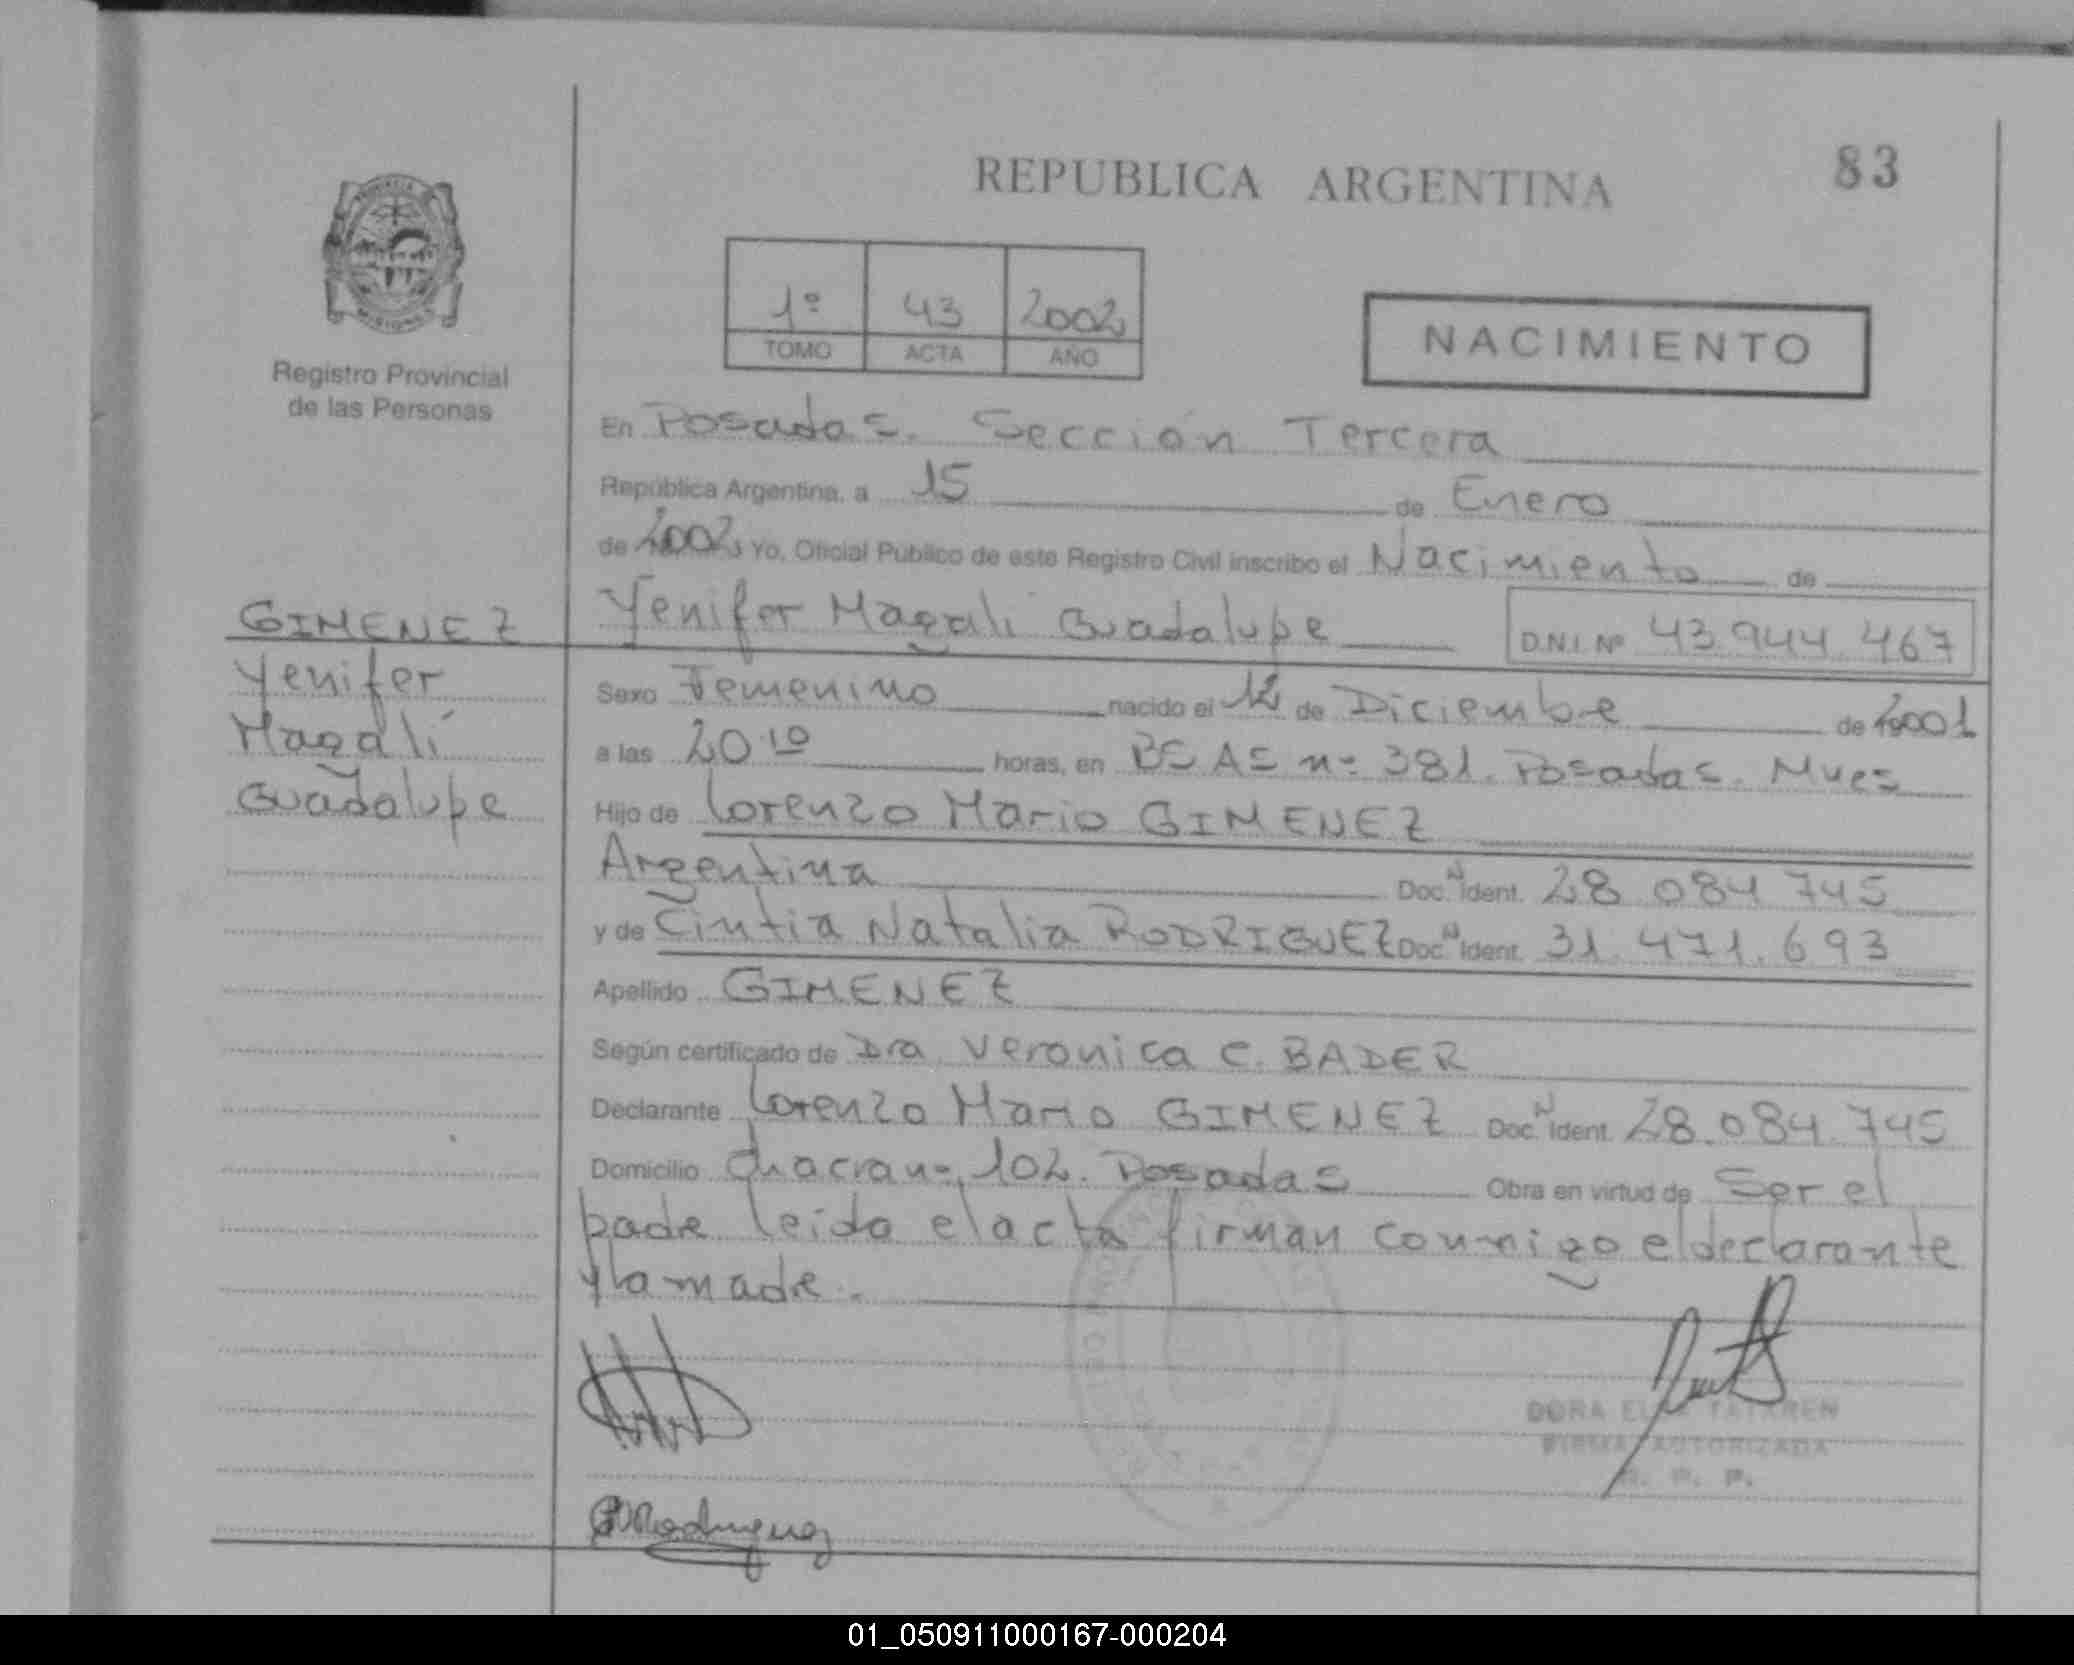 REPUBLICA ARGENTINA
83
PROVINCIA DE
MISIONES
Registro Provincial
de las Personas
1º 43 2002
TOMO ACTA AÑO
NACIMIENTO
En Posadas. Sección Tercera
República Argentina, a 15 de Enero
de 2002 Yo, Oficial Público de este Registro Civil inscribo el Nacimiento de
Yenifer Magali Guadalupe D.N.I. Nº 43 944 467
GIMENEZ
Yenifer
Magalí
Guadalupe
Sexo Femenino nacido el 12 de Diciembre de 2001
a las 20 10 horas, en BS AS nº 381. Posadas. Mnes
Hijo de Lorenzo Mario GIMENEZ
Argentina Doc. N Ident. 28 084 745
y de Cintia Natalia RODRIGUEZ Doc. N Ident. 31.471.693
Apellido GIMENEZ
Según certificado de Dra Veronica C. BADER
Declarante Lorenzo Mario GIMENEZ Doc. N Ident. 28.084.745
Domicilio Chacra nº 102. Posadas Obra en virtud de Ser el
padre leido el acta firman conmigo el declarante
y la madre.
DORA
FIRMA AUTORIZADA
R. P. P.
Rodriguez
01_050911000167-000204